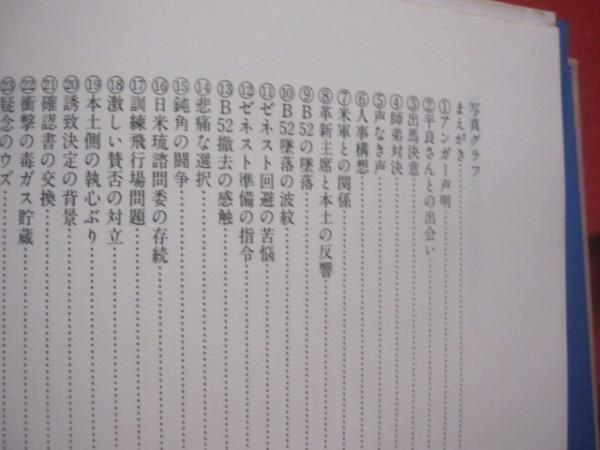 写真グラフ
まえがき
①アンガー声明
②平良さんとの出会い
③出馬決意
④師弟対決
⑤声なき声
⑥人事構想
⑦米軍との関係
⑧革新主席と本土の反響
⑨B52の墜落
⑩B52墜落の波紋
⑪ゼネスト回避の苦悩
⑫ゼネスト準備の指令
⑬B52撤去の感触
⑭悲痛な選択
⑮鈍角の闘争
⑯日米琉諮問委の存続
⑰訓練飛行場問題
⑱激しい賛否の対立
⑲本土側の執心ぶり
⑳誘致決定の背景
㉑確認書の交換
㉒衝撃の毒ガス貯蔵
㉓疑念のウズ